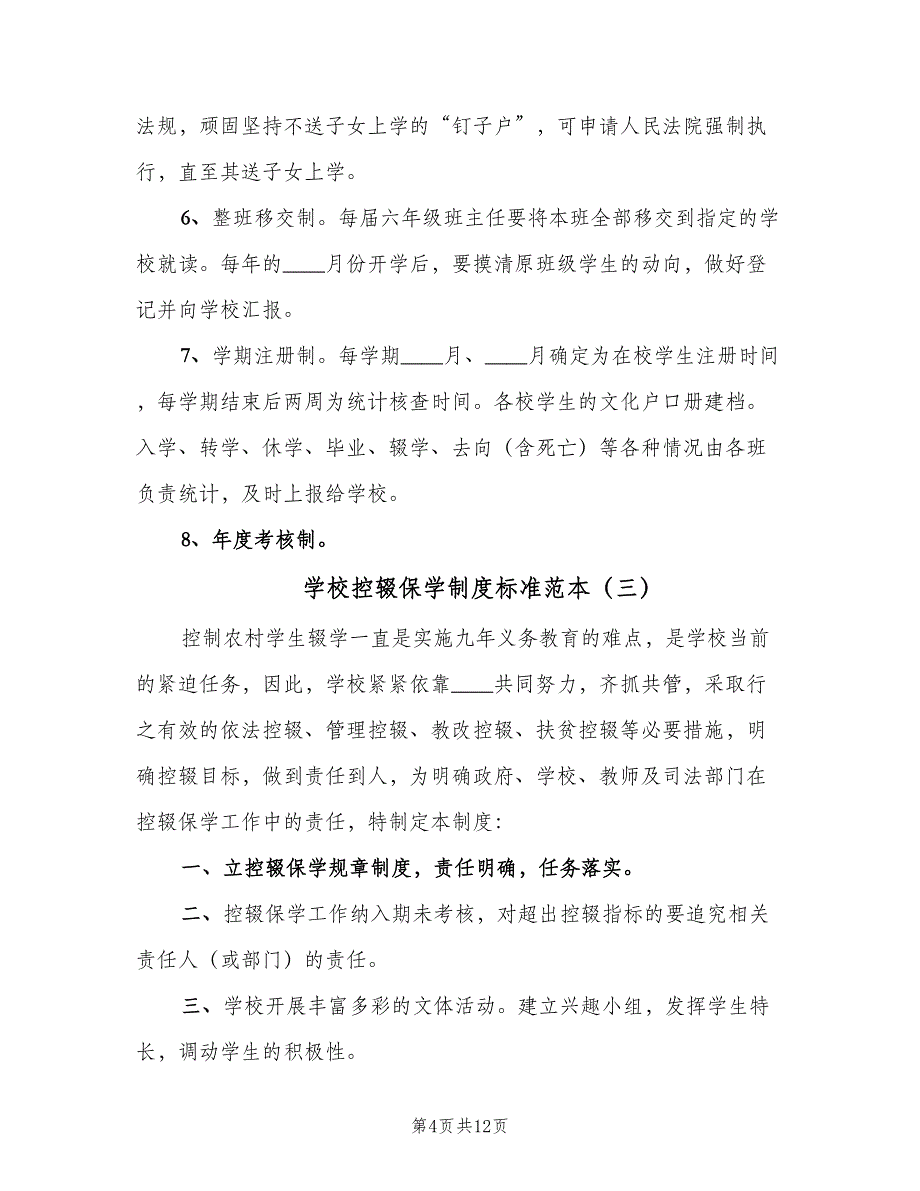 法规，顽固坚持不送子女上学的“钉子户”，可申请人民法院强制执
行，直至其送子女上学。
6、整班移交制。每届六年级班主任要将本班全部移交到指定的学
校就读。每年的____月份开学后，要摸清原班级学生的动向，做好登
记并向学校汇报。
7、学期注册制。每学期____月、____月确定为在校学生注册时间
，每学期结束后两周为统计核查时间。各校学生的文化户口册建档。
入学、转学、休学、毕业、辍学、去向（含死亡）等各种情况由各班
负责统计，及时上报给学校。
8、年度考核制。
学校控辍保学制度标准范本（三）
控制农村学生辍学一直是实施九年义务教育的难点，是学校当前
的紧迫任务，因此，学校紧紧依靠____共同努力，齐抓共管，采取行
之有效的依法控辍、管理控辍、教改控辍、扶贫控辍等必要措施，明
确控辍目标，做到责任到人，为明确政府、学校、教师及司法部门在
控辍保学工作中的责任，特制定本制度：
一、立控辍保学规章制度，责任明确，任务落实。
二、控辍保学工作纳入期未考核，对超出控辍指标的要追究相关
责任人（或部门）的责任。
三、学校开展丰富多彩的文体活动。建立兴趣小组，发挥学生特
长，调动学生的积极性。
第4页共12页